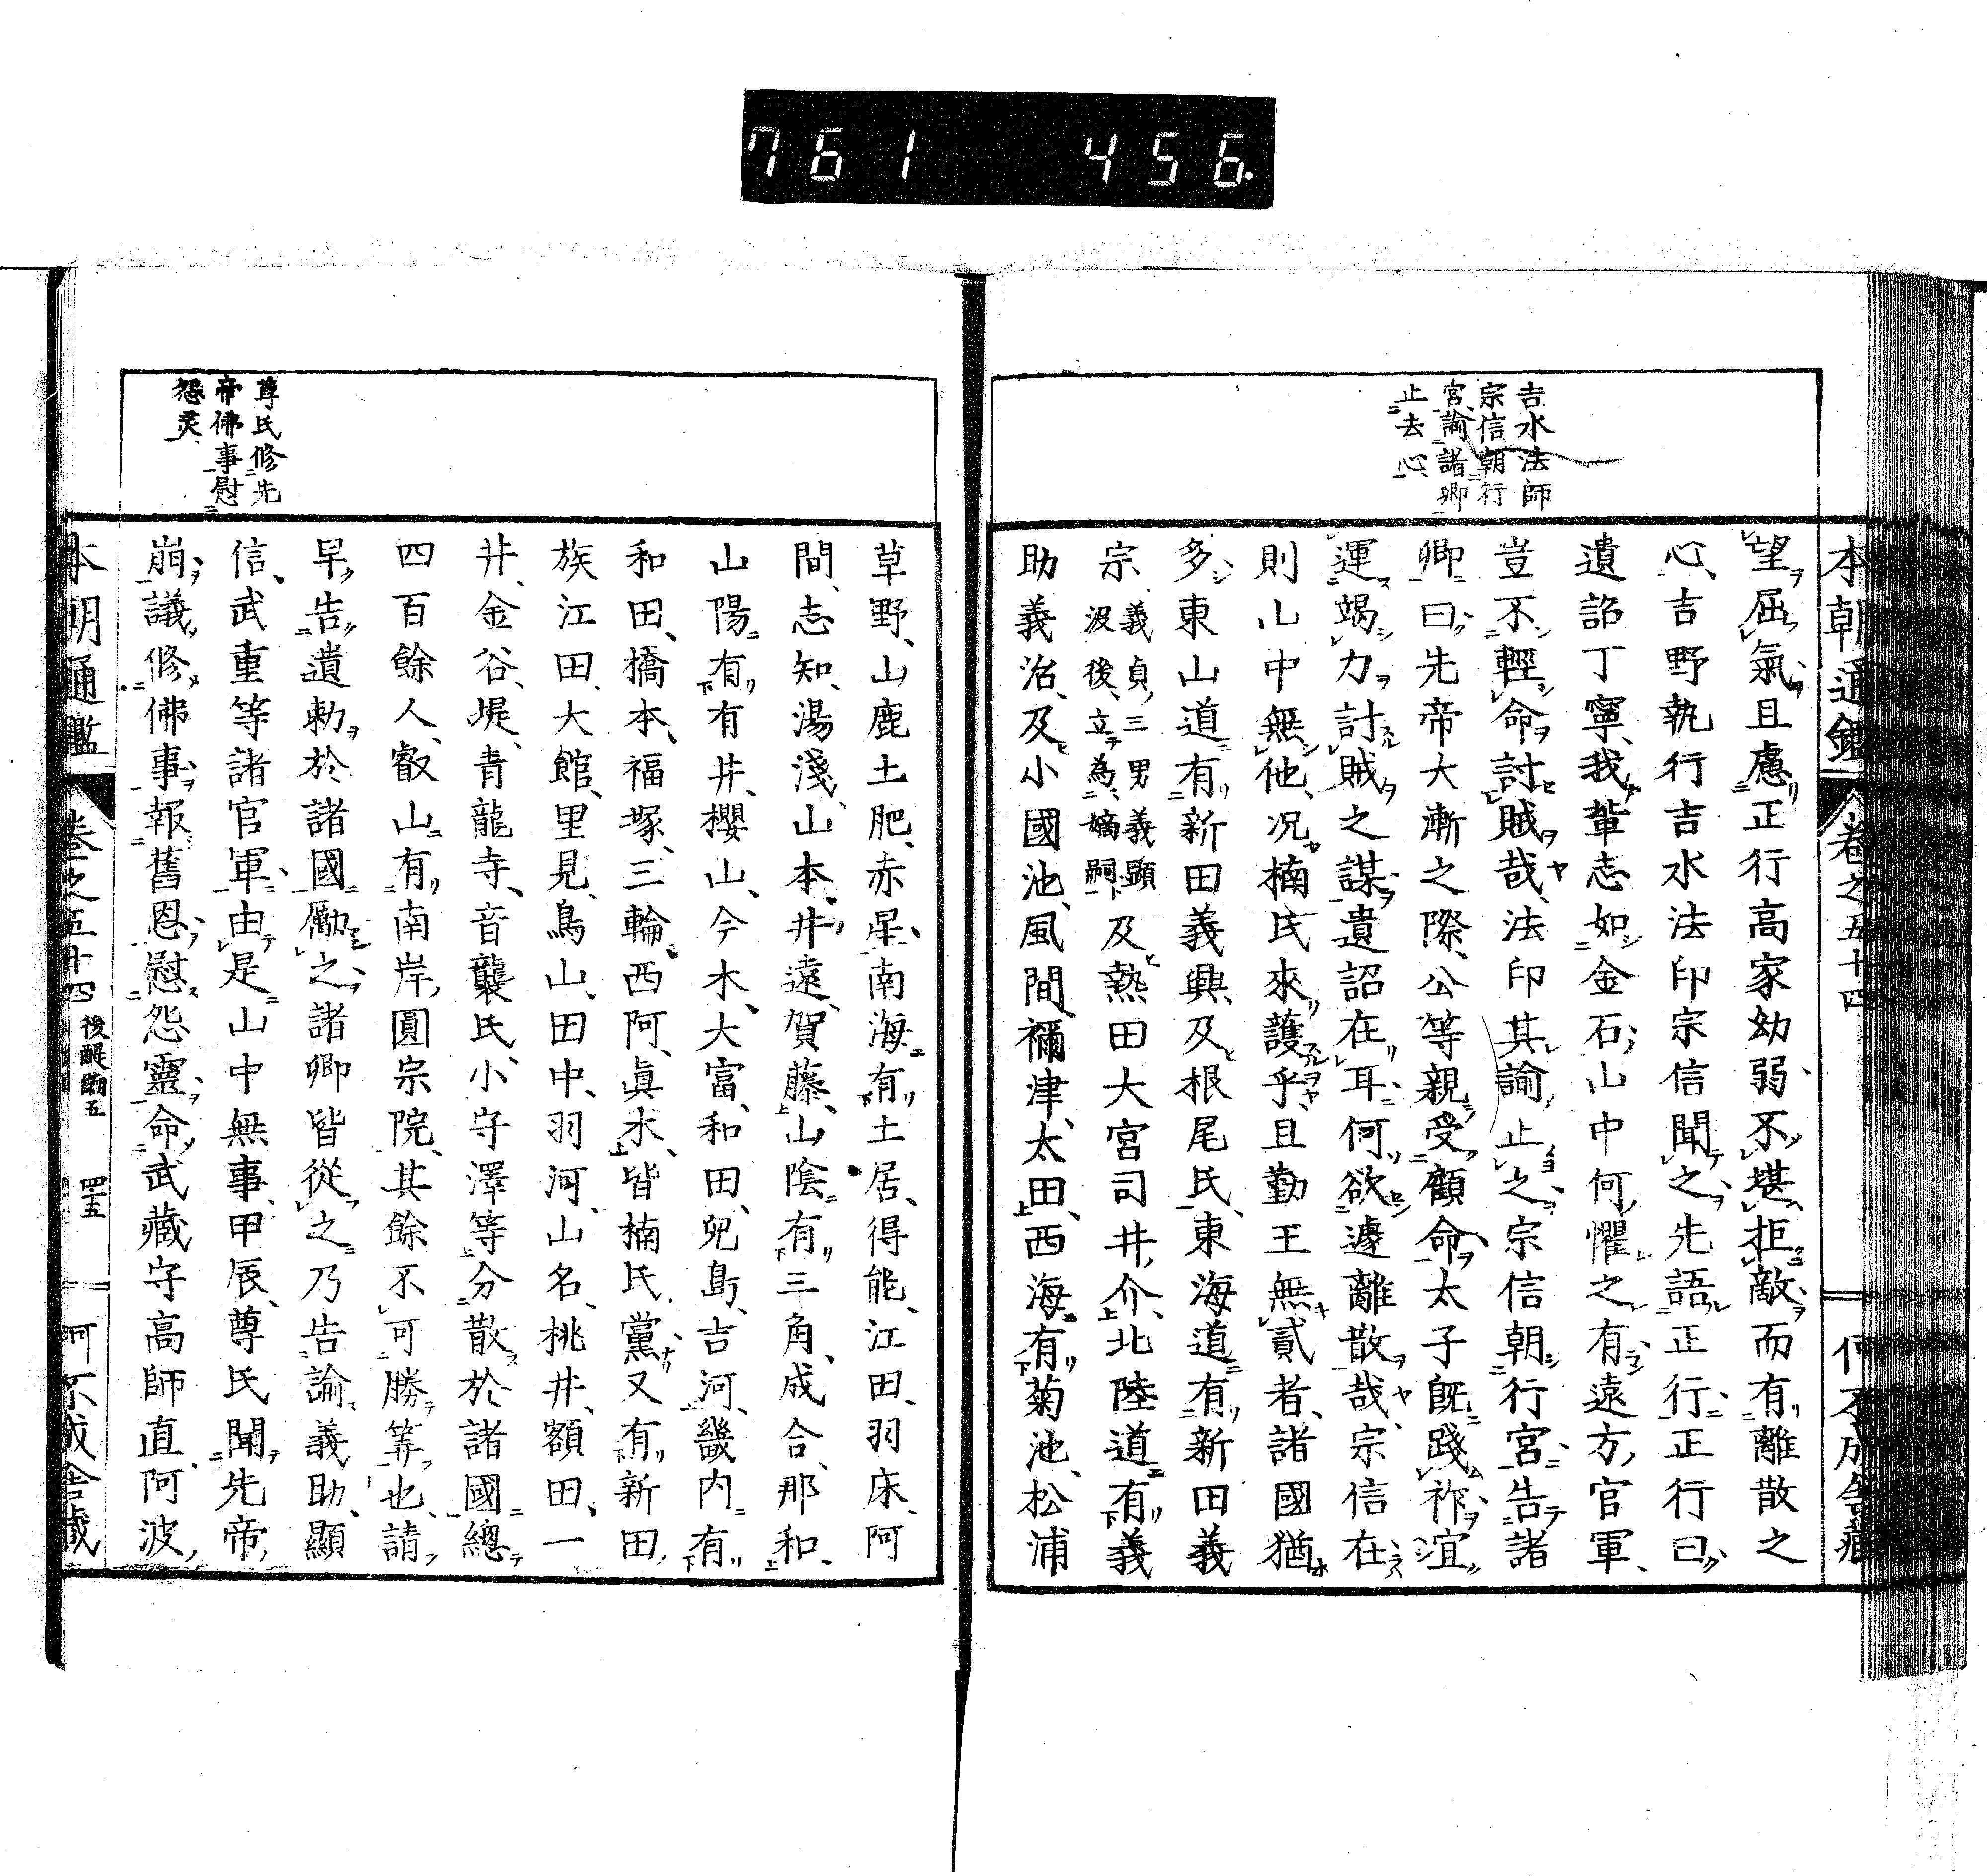 761 456.
本朝通鑑 卷之五十四 何不成舎藏
吉水法師
宗信朝行
宮諭諸卿
止去心
望屈氣且慮正行高家幼弱不堪拒敵而有離散之
心吉野執行吉水法印宗信聞之先語正行正行曰
遺詔丁寧我輩志如金石山中何懼之有遠方官軍
豈不輕命討賊哉法印其諭止之宗信朝行宮告諸
卿曰先帝大漸之際公等親受顧命太子旣踐祚宜
運竭力討賊之謀遺詔在耳何欲遽離散哉宗信在
則山中無他况楠氏來護乎且勤王無貳者諸國猶
多東山道有新田義興及根尾氏東海道有新田義
宗義貞三男義顯
沒後立為嫡嗣及熱田大宮司井介北陸道有義
助義治及小國池風間禰津太田西海有菊池松浦
草野山鹿土肥赤星南海有土居得能江田羽床阿
間志知湯淺山本井遠賀藤山陰有三角成合那和
山陽有有井櫻山今木大富和田兒島吉河畿内有
和田橋本福塚三輪西阿眞木皆楠氏黨又有新田
族江田大館里見鳥山田中羽河山名桃井額田一
井金谷堤青龍寺音襲氏小守澤等分散於諸國總
四百餘人叡山有南岸圓宗院其餘不可勝筭也請
早告遺勅於諸國勵之諸卿皆從之乃告諭義助顯
信武重等諸官軍由是山中無事甲辰尊氏聞先帝
崩議修佛事報舊恩慰怨靈命武藏守高師直阿波
尊氏修先
帝佛事慰
怨灵
本朝通鑑 卷之五十四 後醍醐五 四十五 何不成舎藏